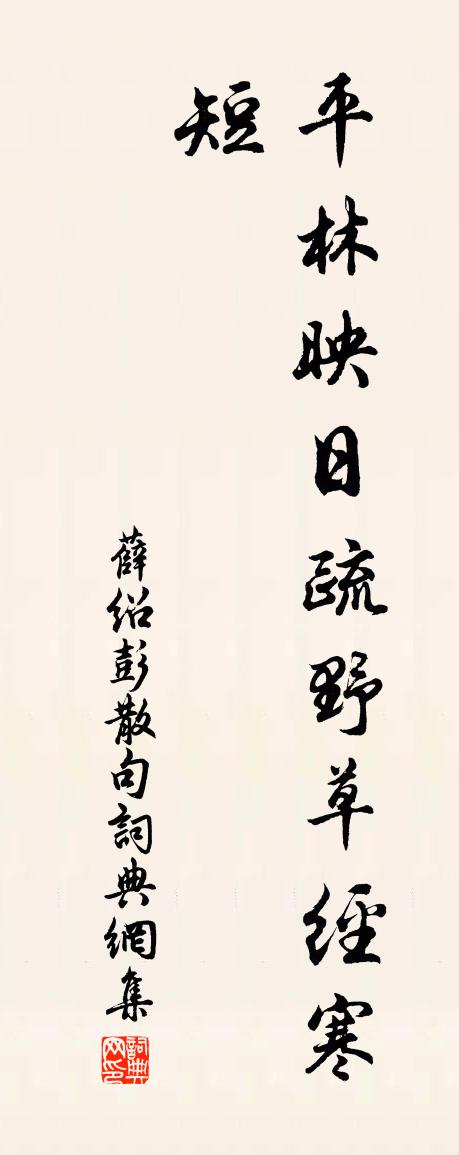 平林映日疏野草經寒
短
薛紹彭散句詞典網集
詞典
网印